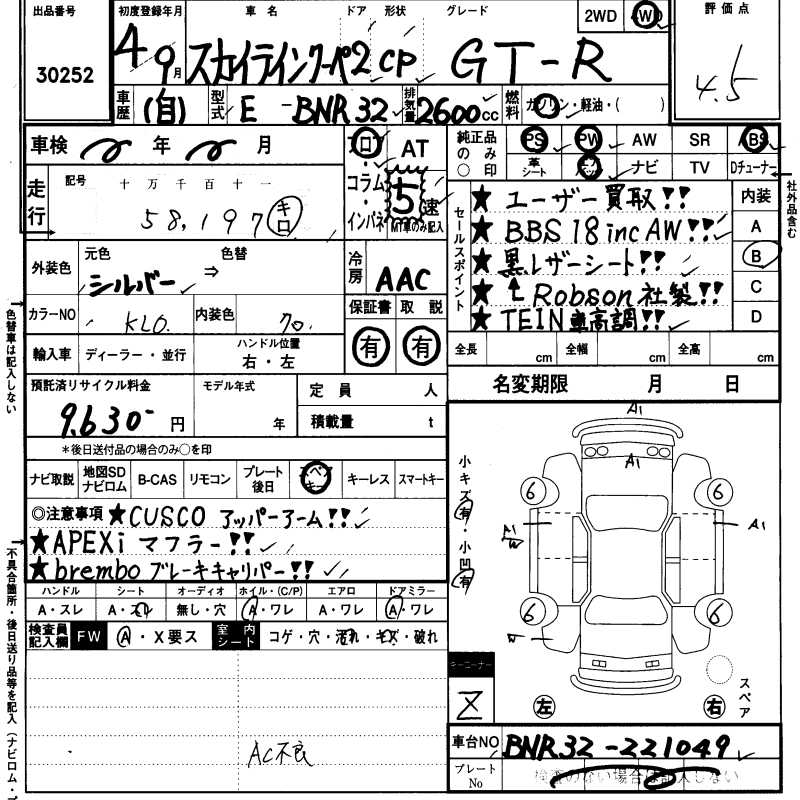 出品番号 初度登録年月 車名 ドア 形状 グレード 2WD 4WD 評価点
30252 4 9月 スカイラインクーペ 2 CP GT-R 4.5
車歴 (自) 型式 E -BNR32 排気量 2600cc 燃料 ガソリン・軽油・( )
車検 年 月 フロア AT 純正品のみ○印 PS PW AW SR ABS
革シート エアバッグ ナビ TV Dチューナー
社外品含む
走行 記号 十万千百十一 コラム・インパネ 5速 MT車のみ記入
58,197 キロ
セールスポイント
★ユーザー買取!! 内装
★BBS 18inc AW!! A
★黒レザーシート!! B
★↑Robson社製!! C
★TEIN車高調!! D
外装色 元色 シルバー ⇒ 色替 冷房 AAC
カラーNO KLO. 内装色 70. 保証書 取説
有 有
色替車は記入しない
輸入車 ディーラー・並行 ハンドル位置 右・左
全長 cm 全幅 cm 全高 cm
預託済リサイクル料金 モデル年式 定員 人 名変期限 月 日
9,630- 円 年 積載量 t
*後日送付品の場合のみ○を印
ナビ取説 地図SDナビロム B-CAS リモコン プレート後日 スペアキー キーレス スマートキー
◎注意事項 ★CUSCO アッパーアーム!!
★APEXi マフラー!!
★brembo ブレーキキャリパー!!
ハンドル シート オーディオ ホイル・(C/P) エアロ ドアミラー
A・スレ A・スレ 無し・穴 A・ワレ A・ワレ A・ワレ
検査員記入欄 FW A・X要ス 室内シート コゲ・穴・汚れ・キズ・破れ
AC不良
不具合箇所・後日送り品等を記入(ナビロム・
小キズ 有・小凹 有
A1
A1
6 6
A1 W A1
6 6
W
コーナー
左 右 スペア
車台NO BNR32-221049
プレートNo 検査のない場合は記入しない